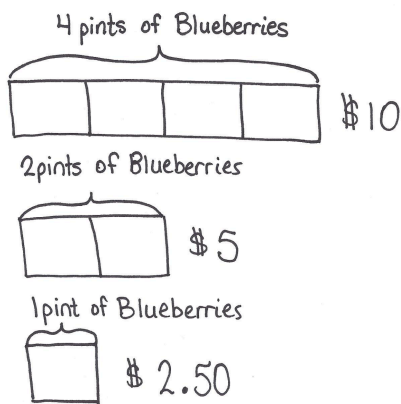 4 pints of Blueberries
$10
2pints of Blueberries
$5
1pint of Blueberries
$2.50